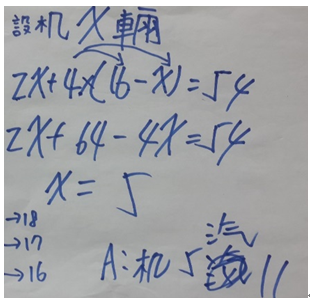 設机X輛
2X+4×(16-X)=54
2X+64-4X=54
X=5
→18
→17
→16
A:机5汽11